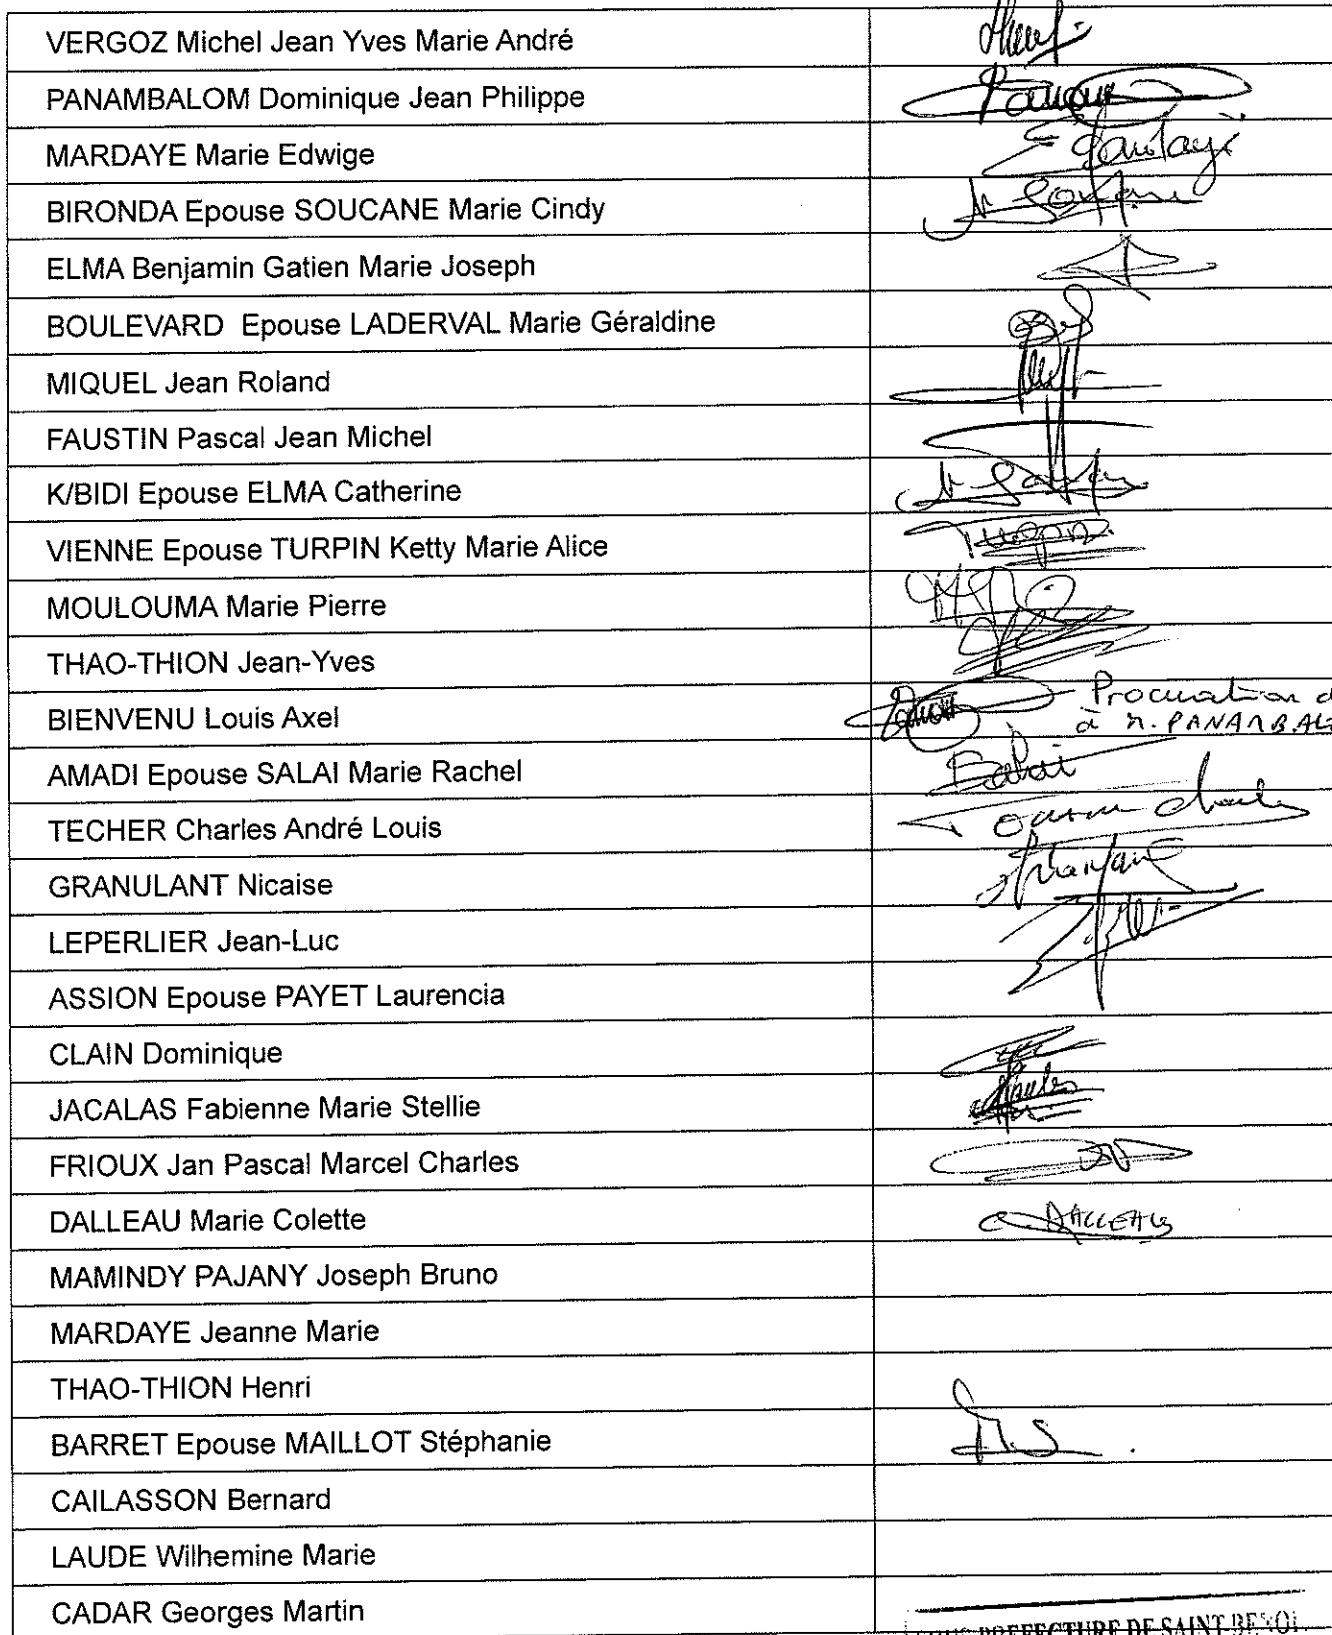 VERGOZ Michel Jean Yves Marie André
PANAMBALOM Dominique Jean Philippe
MARDAYE Marie Edwige
BIRONDA Epouse SOUCANE Marie Cindy
ELMA Benjamin Gatien Marie Joseph
BOULEVARD Epouse LADERVAL Marie Géraldine
MIQUEL Jean Roland
FAUSTIN Pascal Jean Michel
K/BIDI Epouse ELMA Catherine
VIENNE Epouse TURPIN Ketty Marie Alice
Turpin
MOULOUMA Marie Pierre
THAO-THION Jean-Yves
BIENVENU Louis Axel
Procuration d
à M. PANAMBAL
AMADI Epouse SALAI Marie Rachel
TECHER Charles André Louis
GRANULANT Nicaise
LEPERLIER Jean-Luc
ASSION Epouse PAYET Laurencia
CLAIN Dominique
JACALAS Fabienne Marie Stellie
FRIOUX Jan Pascal Marcel Charles
DALLEAU Marie Colette
DALLEAU
MAMINDY PAJANY Joseph Bruno
MARDAYE Jeanne Marie
THAO-THION Henri
BARRET Epouse MAILLOT Stéphanie
M.S.
CAILASSON Bernard
LAUDE Wilhemine Marie
CADAR Georges Martin
PREFECTURE DE SAINT-BENOI